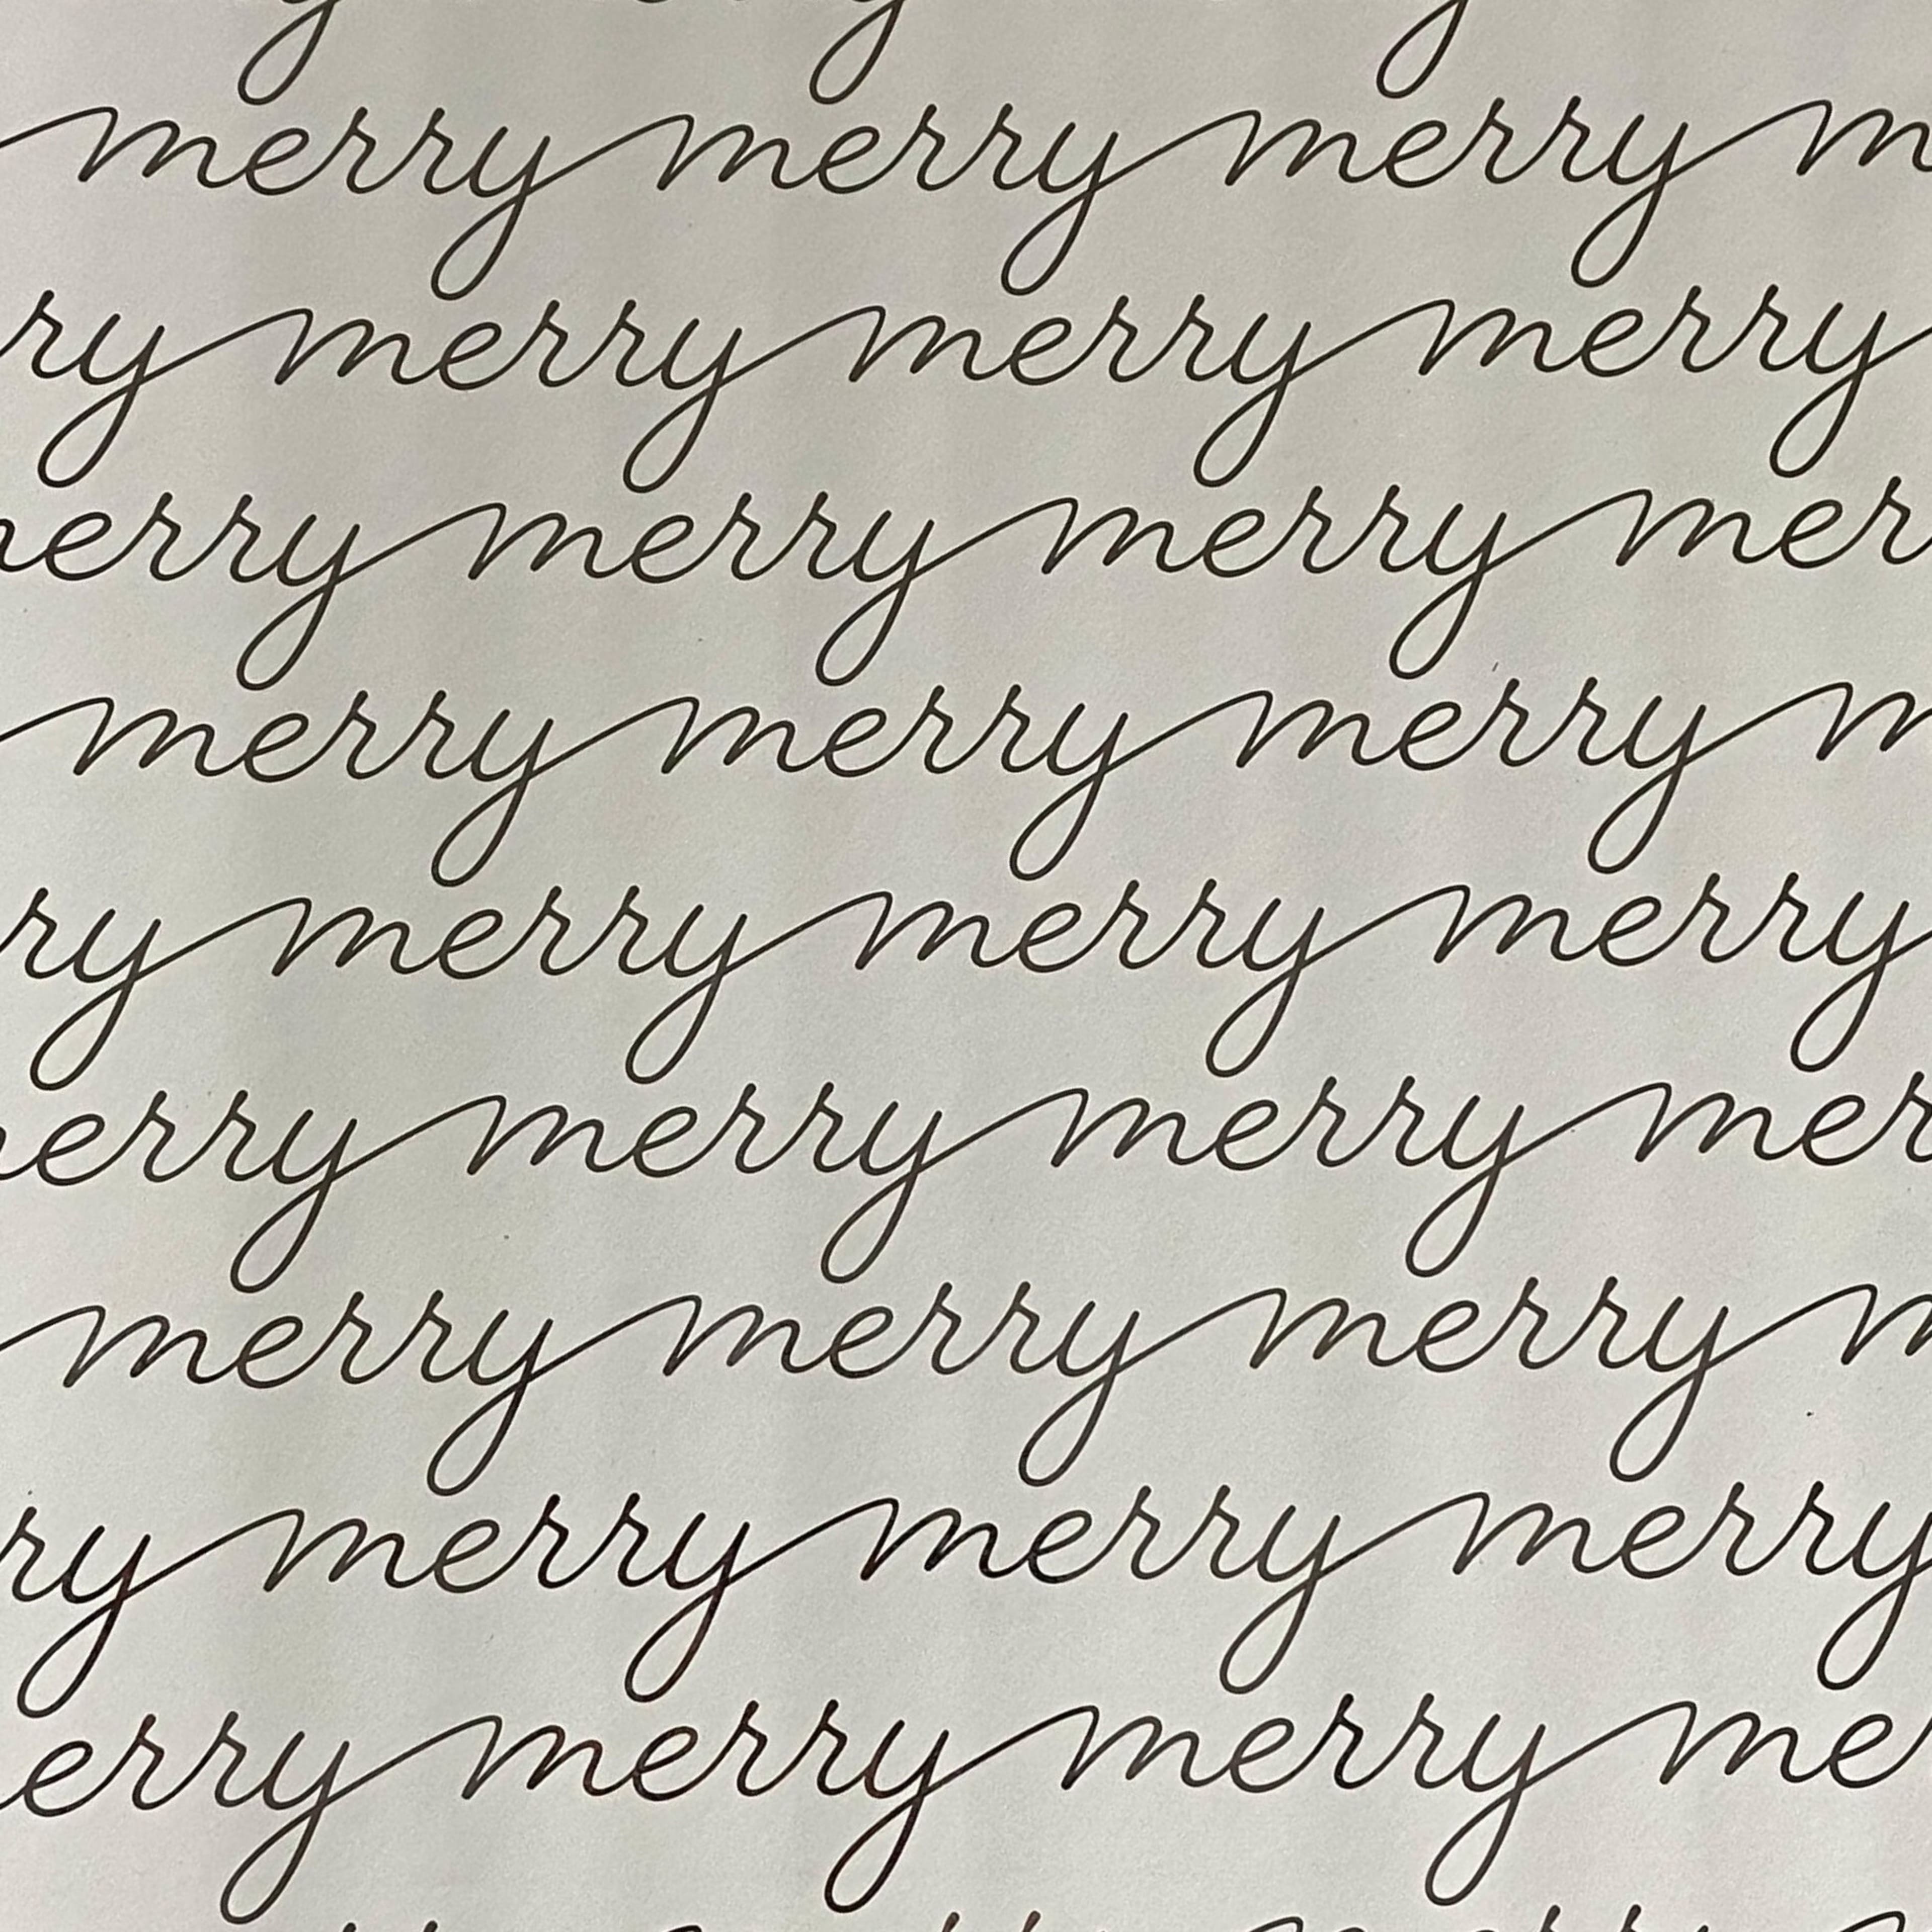 merry merry merry m
ry merry merry merry
erry merry merry mer
merry merry merry m
ry merry merry merry
erry merry merry mer
merry merry merry m
ry merry merry merry
erry merry merry me